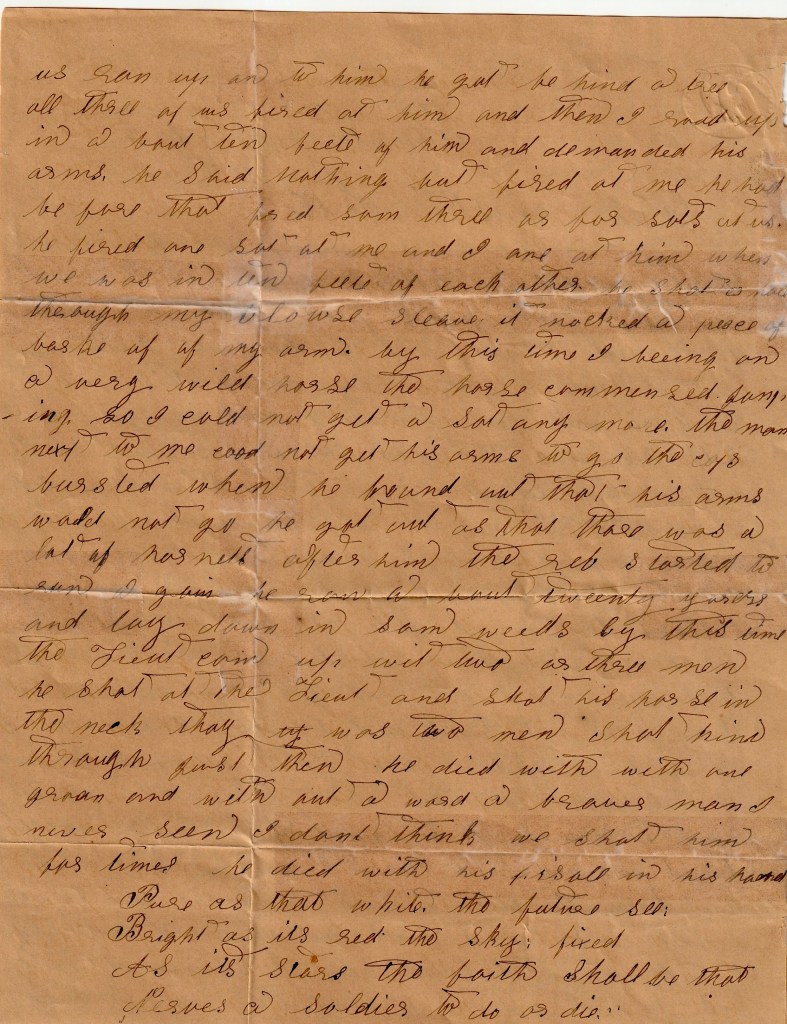 us ran up on to him he got be hind a tree
all three of us fired at him and then I road up
in a bout ten feete of him and demanded his
arms. he said nothing but fired at me he had
be fore that fired som three or for sots at us.
he fired one sot at me and I one at him when
we was in ten feete of each other he shot a hole
through my blowse sleave it nocked a peace of
barke of of my arm. by this time I beeing on
a very wild horse the horse commensed jump
-ing. so I cold not get a sot any more. the man
next to me cood not get his arms to go the caps
bursted when he found out that his arms
wold not go he got out as that thare was a
lot of hornets after him the reb started to
run a gain he ran a bout twenty yards
and lay down in som weeds by this time
the Lieut com up wit two or three men
he shot at the Lieut and shot his horse in
the neck thay was two men shot him
through just then he died with with one
groan and with out a word a braver man I
never seen I dont think we shot him
for times he died with his pisoll in his hand
Pure as that white the future see;
Bright as its red the sky; fixed
As its stars the faith shall be that
Nerves a soldier to do or die..